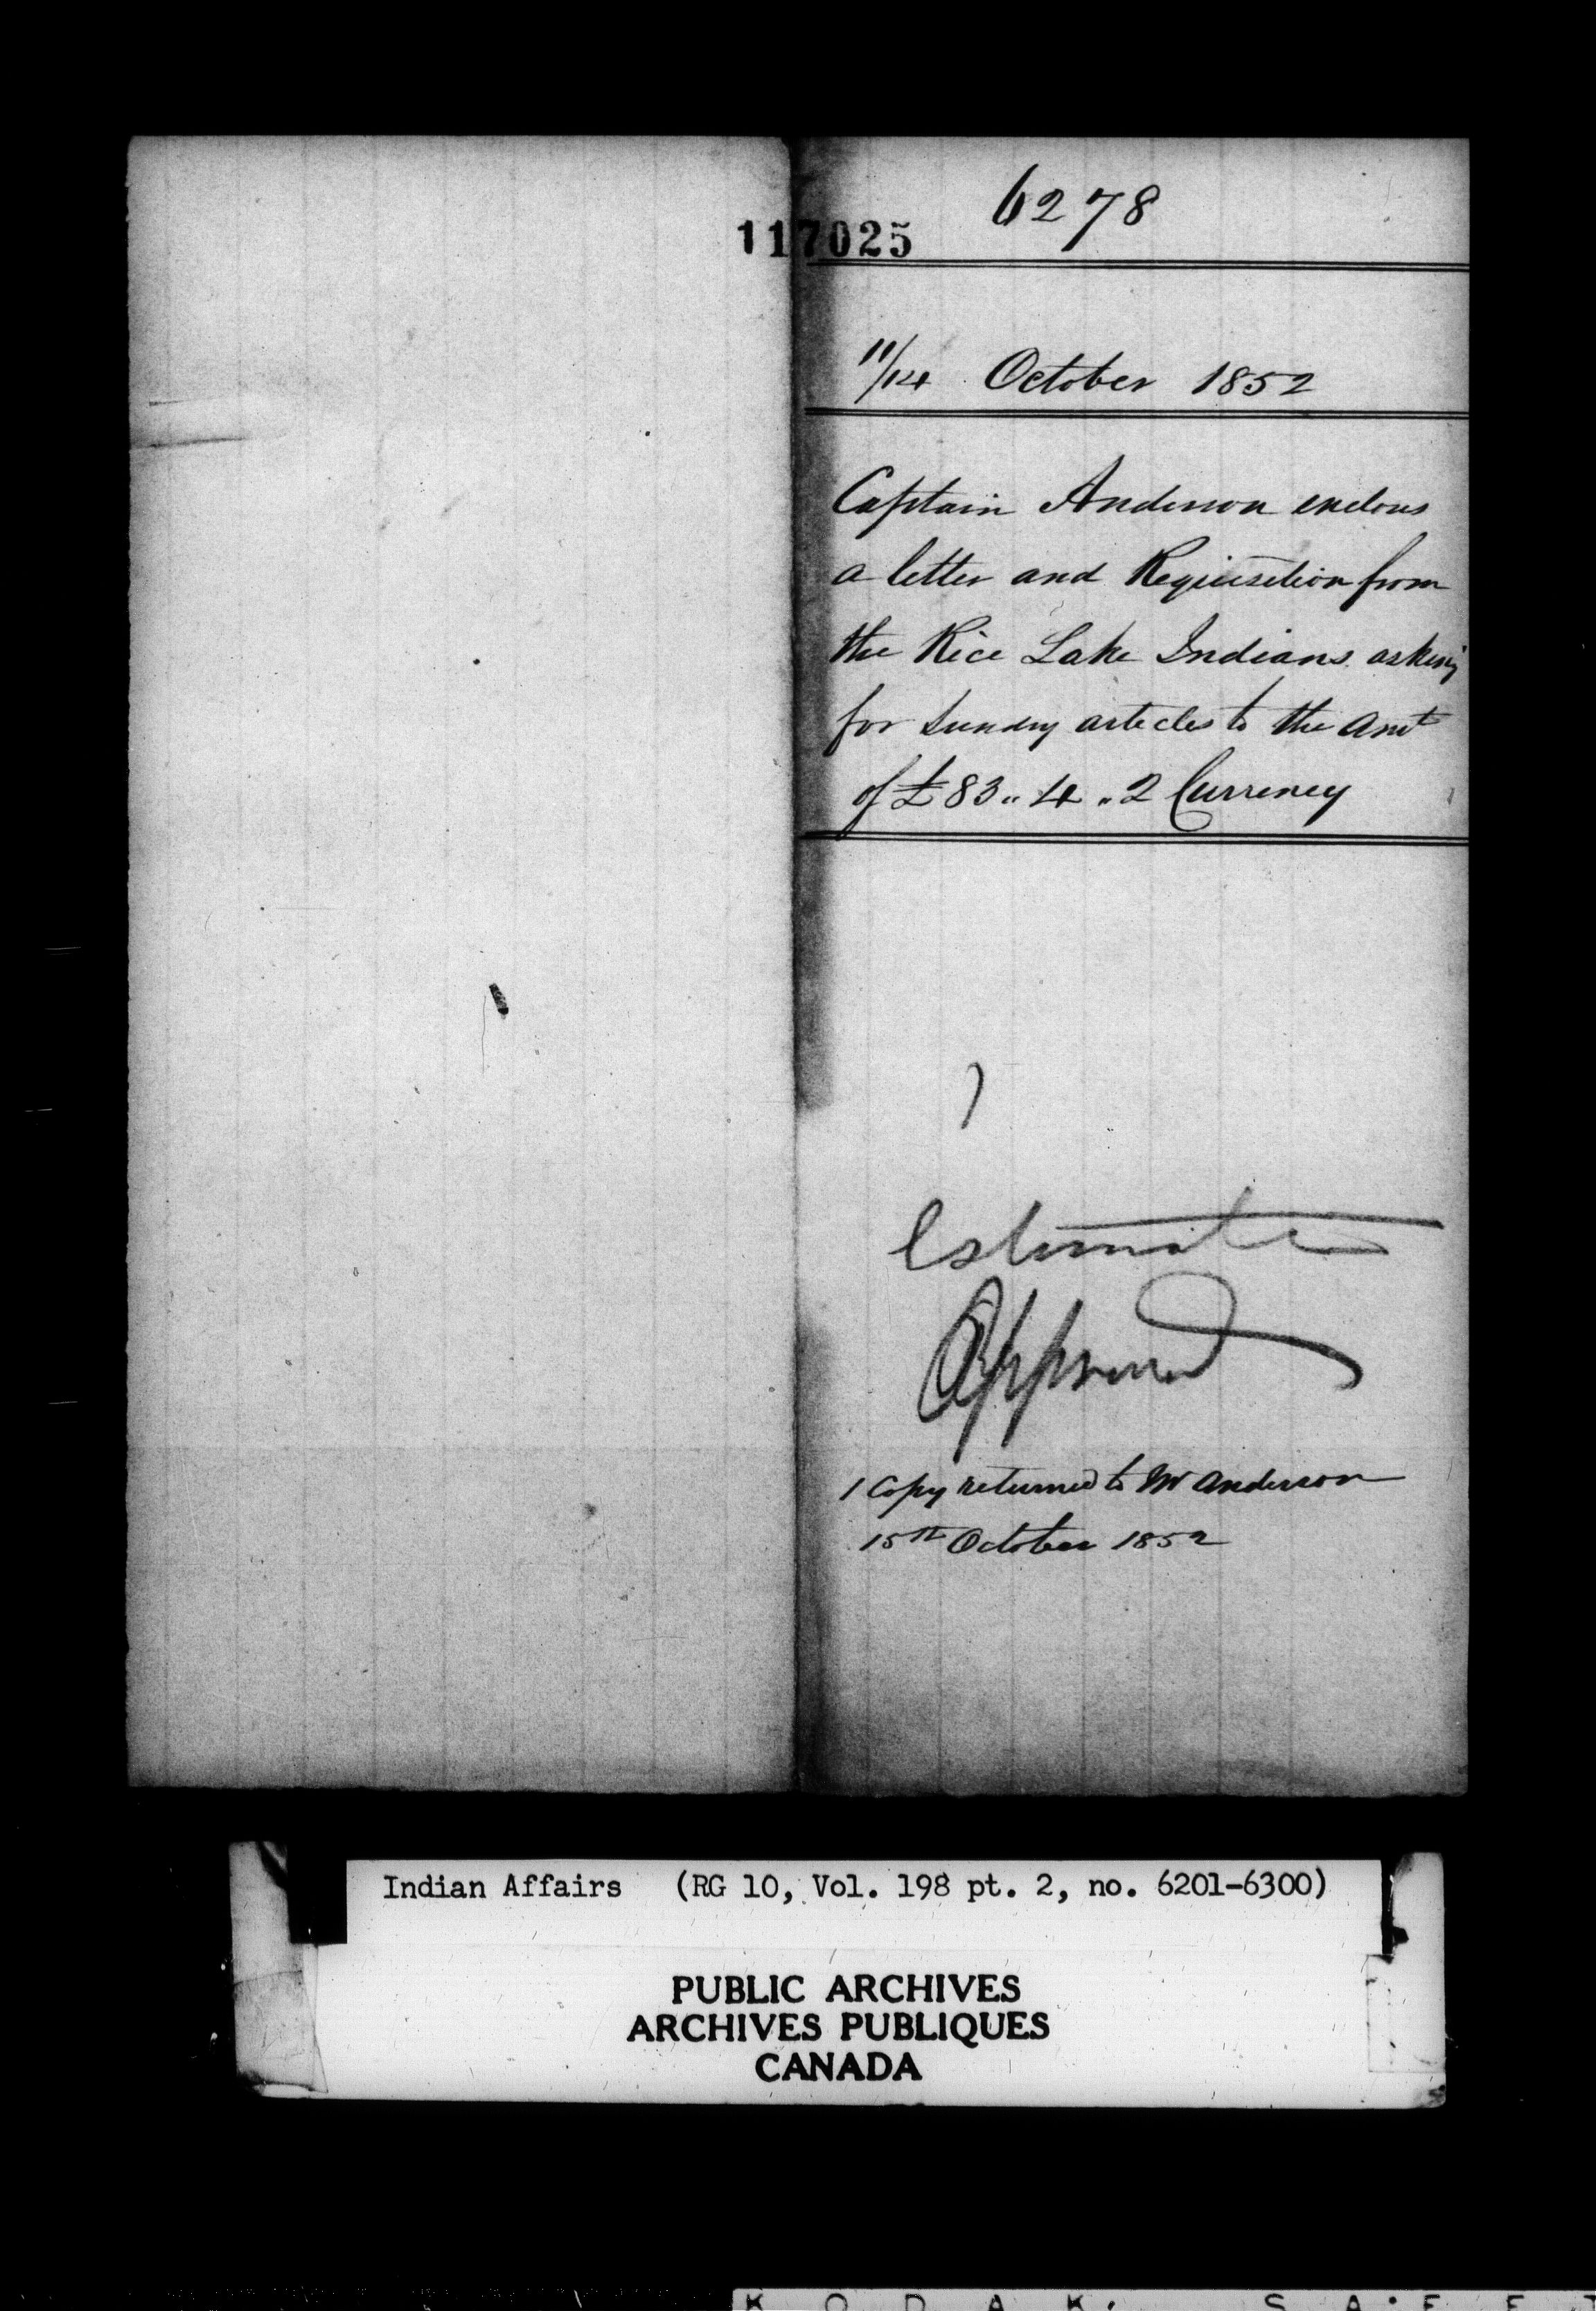 6278
117025
11/14 October 1852
Captain Anderson enclous
a letter and Requisition from
the Rice Lake Indians asking
for Sundry articles to the Amt
of £83 „ 4 „ 2 Currency
Estimate
Approved
1 Copy returned to Mr Anderson
15th October 1852
Indian Affairs (RG 10, Vol. 198 pt. 2, no. 6201-6300)
PUBLIC ARCHIVES
ARCHIVES PUBLIQUES
CANADA
KODAK SAFET